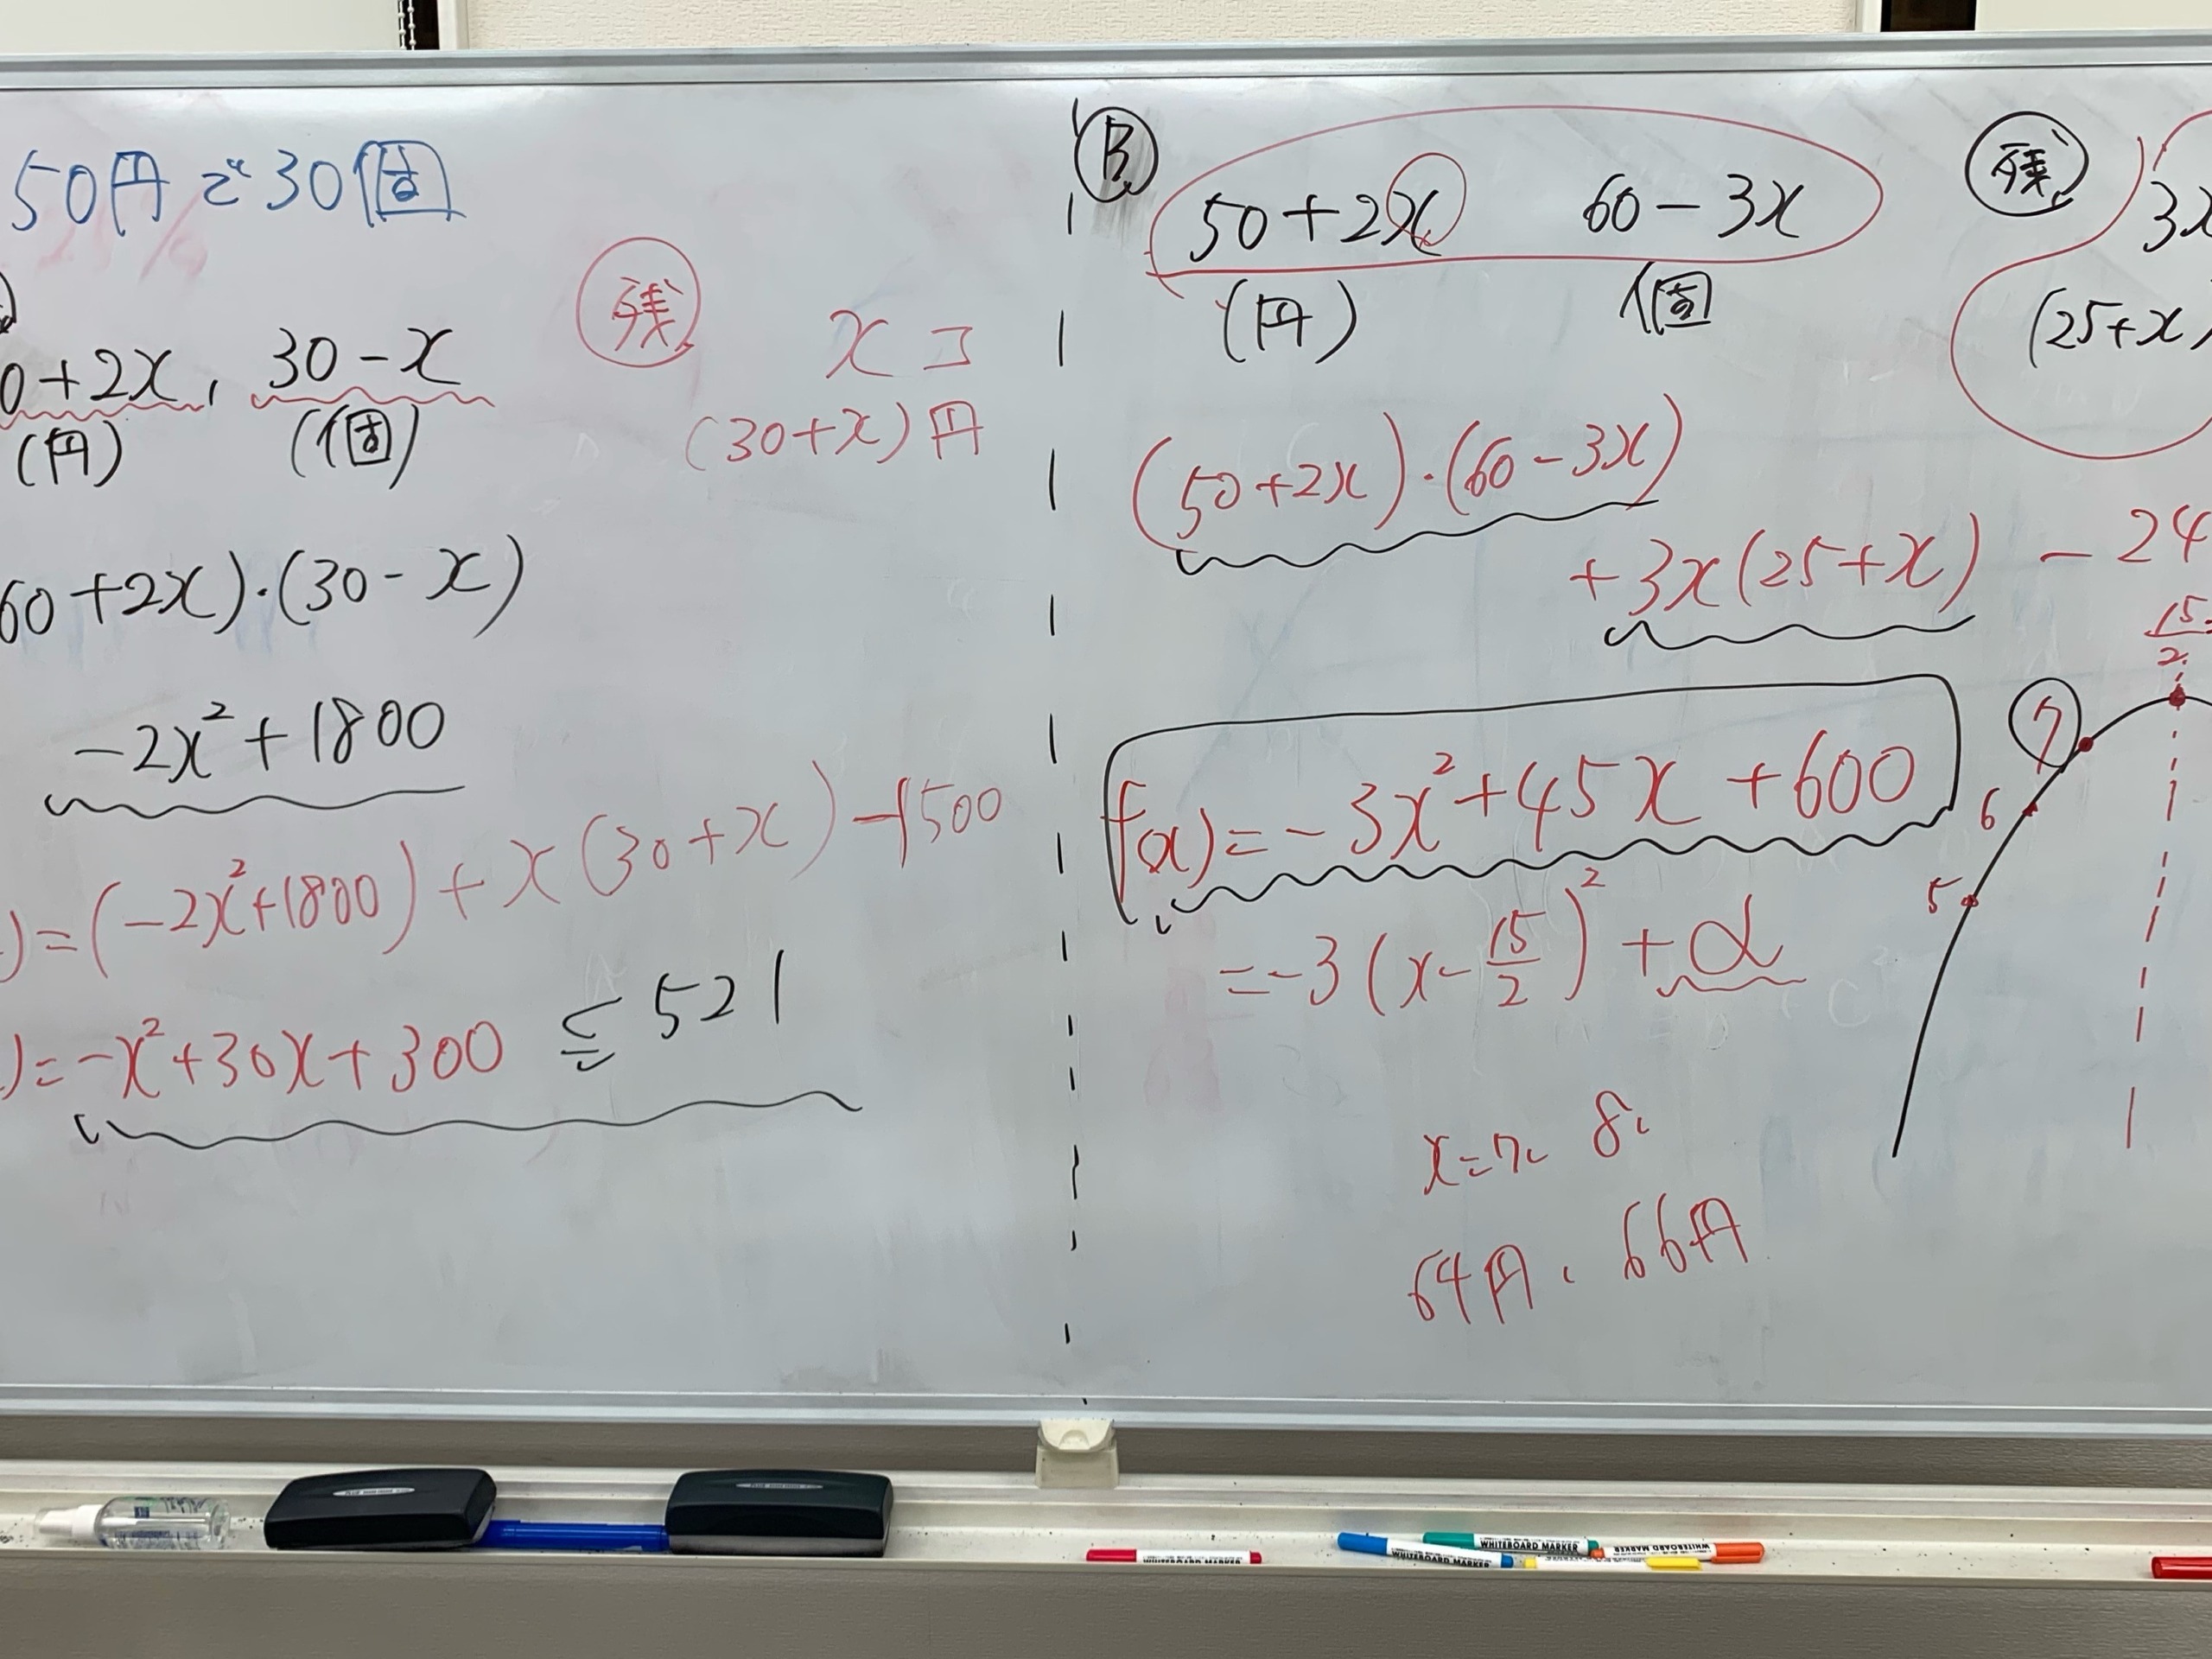 50円で30個
0+2x, 30-x
(円) (個)
残 xコ
(30+x)円
60+2x)・(30-x)
-2x²+1800
)=(-2x²+1800)+x(30+x)-1500
)=-x²+30x+300 ≦ 521
B 50+2x 60-3x
(円) 個
残 3x
(25+x)
(50+2x)・(60-3x)
+3x(25+x) -24
15/2
7
6
5
f(x)=-3x²+45x+600
=-3(x-15/2)²+α
x=7、8、
64円、66円
WHITEBOARD MARKER
WHITEBOARD MARKER
WHITEBOARD MARKER
WHITEBOARD MARKER